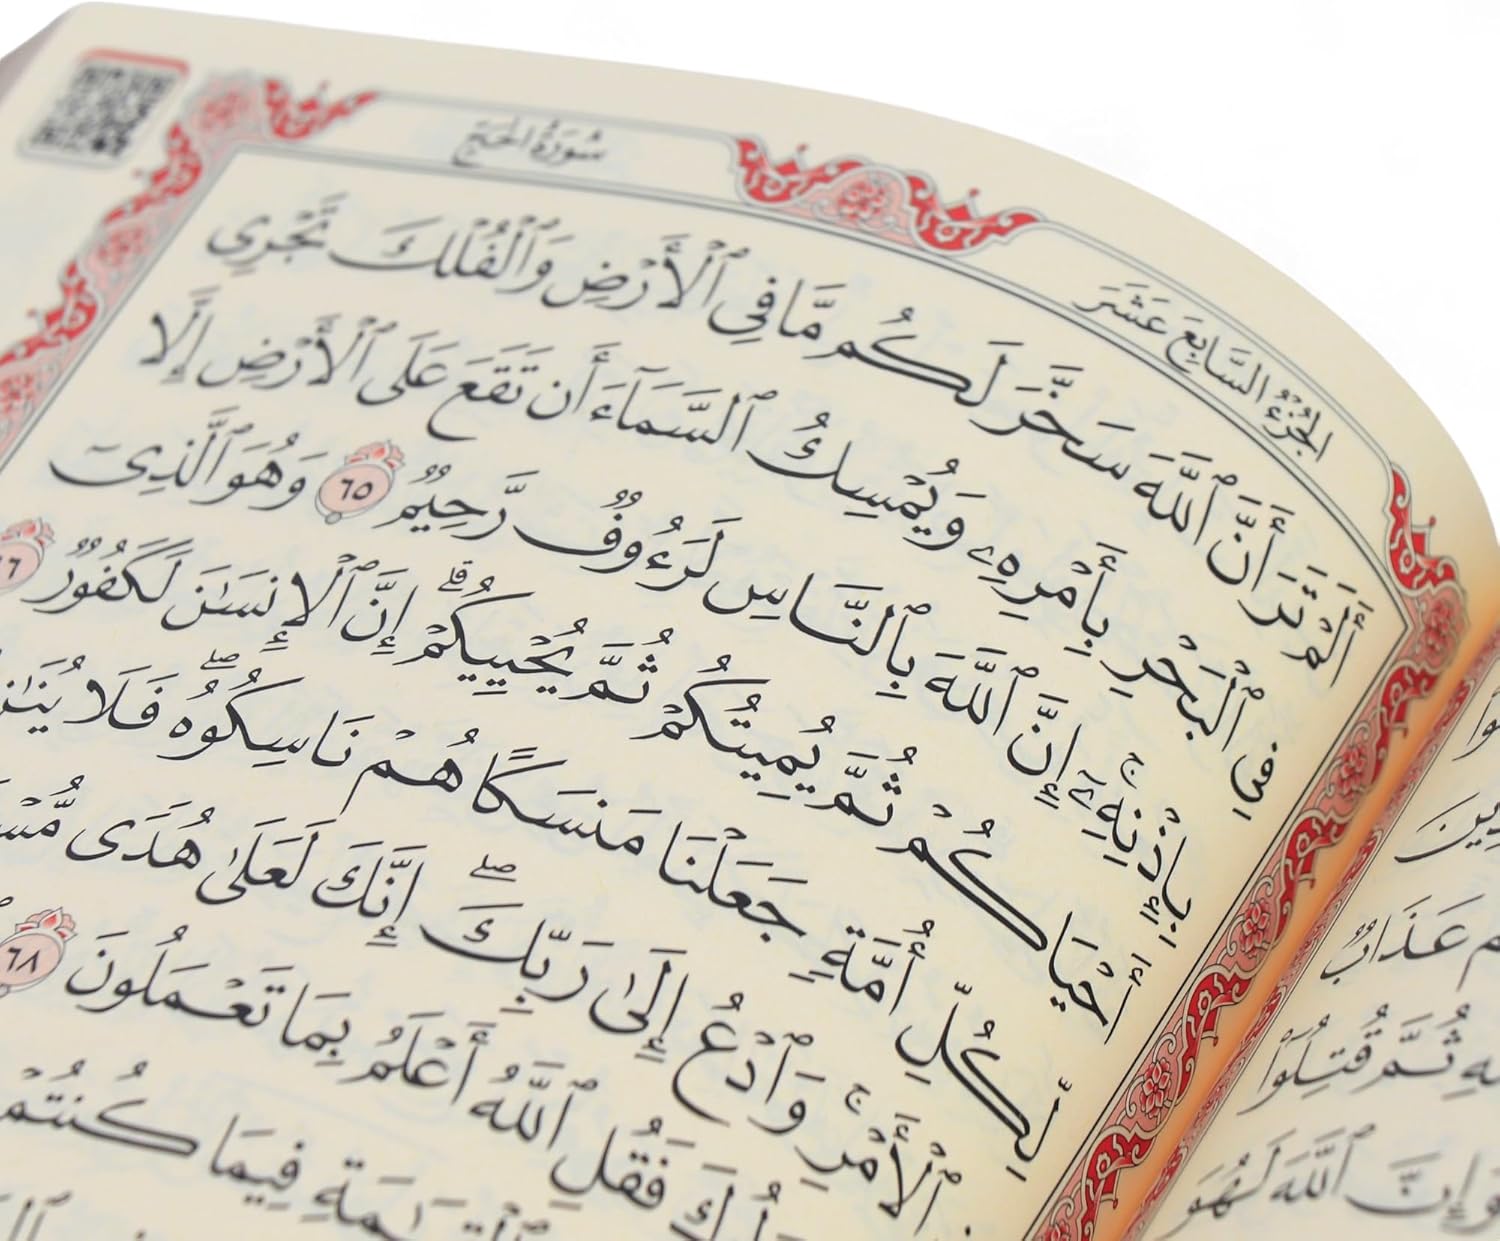 سُورَةُ الحَجّ
الجُزْءُ السَّابِعَ عَشَرَ
أَلَمْ تَرَ أَنَّ ٱللَّهَ سَخَّرَ لَكُم مَّا فِى ٱلْأَرْضِ وَٱلْفُلْكَ تَجْرِى
فِى ٱلْبَحْرِ بِأَمْرِهِۦ وَيُمْسِكُ ٱلسَّمَآءَ أَن تَقَعَ عَلَى ٱلْأَرْضِ إِلَّا
بِإِذْنِهِۦٓ ۚ إِنَّ ٱللَّهَ بِٱلنَّاسِ لَرَءُوفٌ رَّحِيمٌ ٦٥ وَهُوَ ٱلَّذِىٓ
أَحْيَاكُمْ ثُمَّ يُمِيتُكُمْ ثُمَّ يُحْيِيكُمْ ۗ إِنَّ ٱلْإِنسَٰنَ لَكَفُورٌ
لِكُلِّ أُمَّةٍ جَعَلْنَا مَنسَكًا هُمْ نَاسِكُوهُ ۖ فَلَا
ٱلْأَمْرِ ۚ وَٱدْعُ إِلَىٰ رَبِّكَ ۖ إِنَّكَ لَعَلَىٰ هُدًى
فَقُلِ ٱللَّهُ أَعْلَمُ بِمَا تَعْمَلُونَ ٦٨
فِيمَا كُنتُمْ
عَذَابٌ
ثُمَّ قُتِلُوٓا۟
وَإِنَّ ٱللَّهَ لَهُوَ